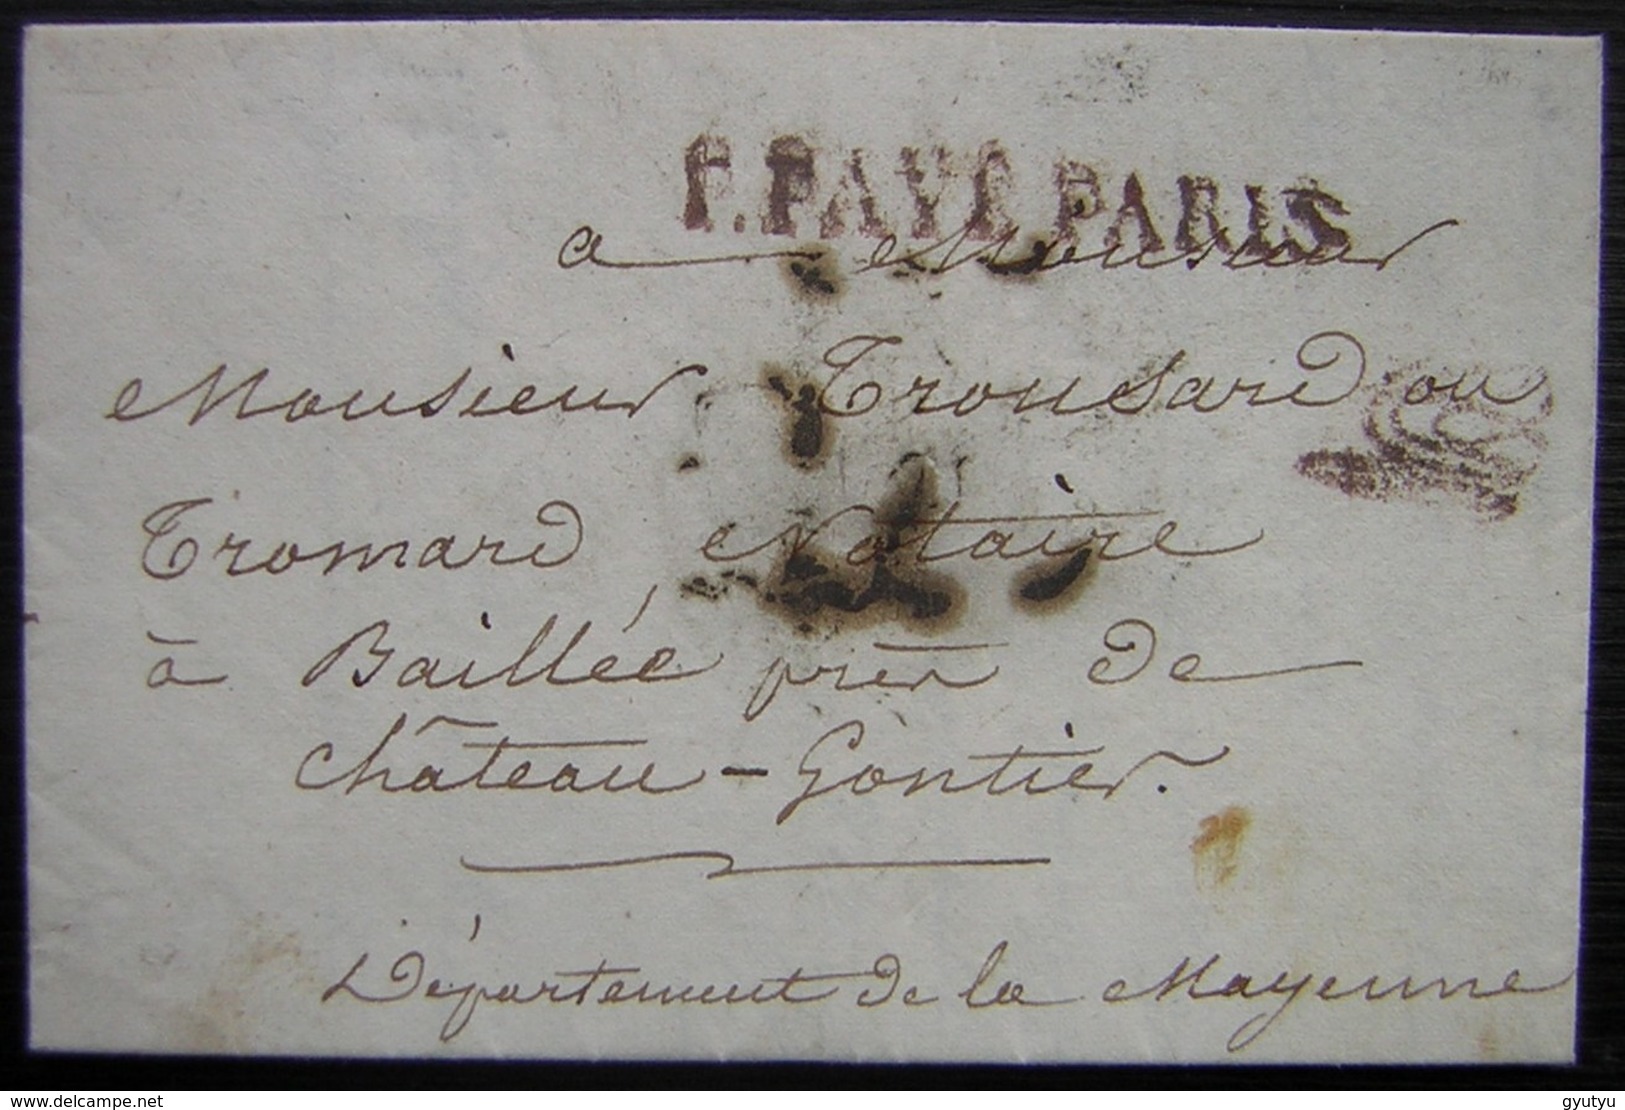 P.PAYÉ PARIS
a Monsieur
Monsieur Trousard ou
Tromard Notaire
à Baillée près de
Château-Gontier.
Département de la Mayenne
delcampe.net
gyutyu